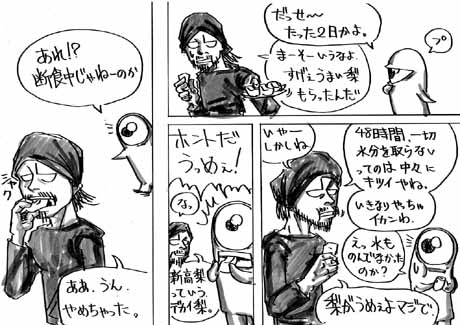 あれ!?
断食中じゃねーのか
シャク
ああ、うん、
やめちゃった。
だっせ〜
たった2日かよ。
まーそーいうなよ
すげぇうまい梨
もらったんだ
プ
ホントだ
うっめぇ!
な。
新高梨
っていう
デカイ梨。
いやー
しかしね
48時間、一切
水分を取らない
ってのは中々に
キツイやね。
いきなりやっちゃ
イカンね。
えっ水も
のんでなかった
のか?
梨がうめぇよマジで。